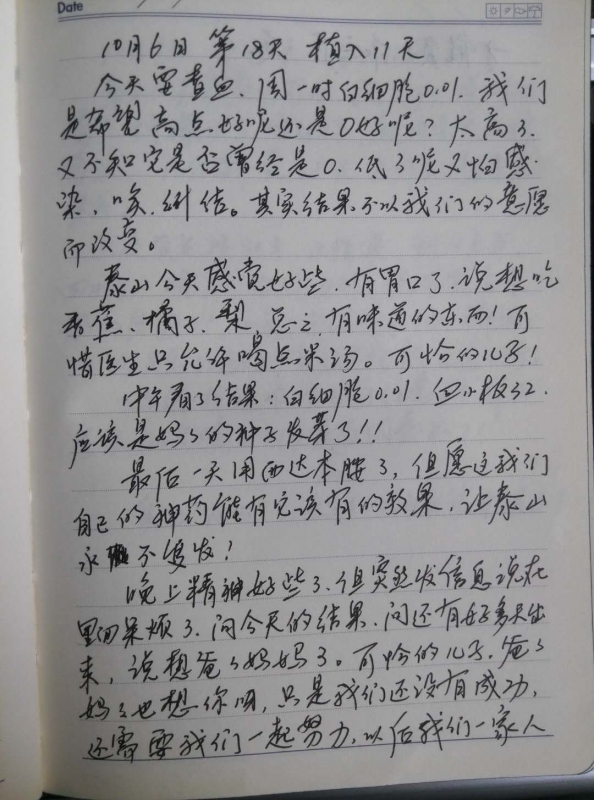 Date
10月6日 第18天 植入11天
今天要查血、周一时白细胞0.01. 我们
是希望高点好呢还是0好呢？太高了.
又不知它是否曾经是0. 低了呢又怕感
染、唉.纠结。其实结果不以我们的意愿
而改变。
泰山今天感觉好些.有胃口了.说想吃
香蕉、橘子、梨.总之.有味道的东西！可
惜医生只允许喝点米汤。可怜的儿子！
中午有了结果：白细胞0.01. 血小板32.
应该是妈妈的种子发芽了！！
最后一天用西达本胺了，但愿这我们
自己的神药能有它该有的效果，让泰山
永不复发！
晚上精神好些了.但突然发信息说在
里面呆烦了.问今天的结果.问还有好多天出
来，说想爸爸妈妈了。可怜的儿子.爸爸
妈妈也想你呀，只是我们还没有成功，
还需要我们一起努力.以后我们一家人